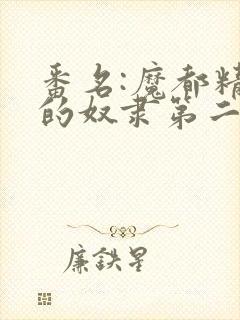 番名:魔都精
的奴隶第二
廉鉄星